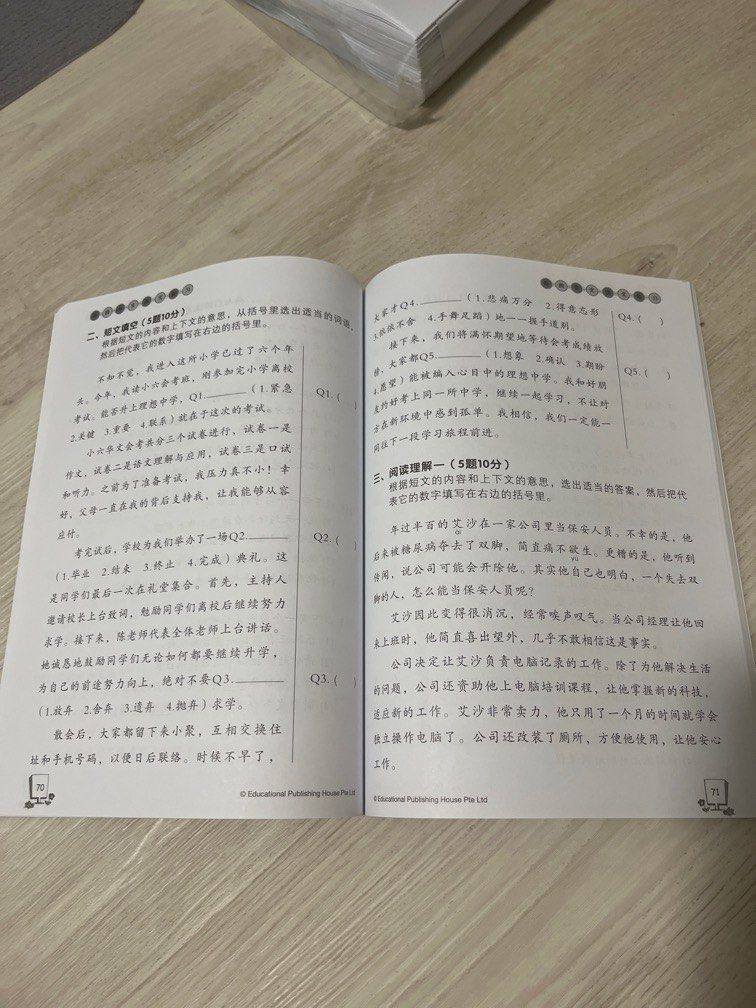 二、短文填空（5题10分）
根据短文的内容和上下文的意思，从括号里选出适当的词语，
然后把代表它的数字填写在右边的括号里。
不知不觉，我进入这所小学已过了六个年
头。今年，我读小六会考班，刚参加完小学离校
考试。能否升上理想中学，Q1.________（1.紧急
2.关键 3.重要 4.联系）就在于这次的考试。
Q1.( )
小六华文会考共分三个试卷进行，试卷一是
作文，试卷二是语文理解与应用，试卷三是口试
和听力。之前为了准备考试，我压力真不小！幸
好，父母一直在我的背后支持我，让我能够从容
应付。
考完试后，学校为我们举办了一场Q2.________
（1.毕业 2.结束 3.终止 4.完成）典礼。这
Q2.( )
是同学们最后一次在礼堂集合。首先，主持人
邀请校长上台致词，勉励同学们离校后继续努力
求学。接下来，陈老师代表全体老师上台讲话。
她诚恳地鼓励同学们无论如何都要继续升学，
为自己的前途努力向上，绝对不要Q3.________
（1.放弃 2.舍弃 3.遗弃 4.抛弃）求学。
Q3.( )
散会后，大家都留下来小聚，互相交换住
址和手机号码，以便日后联络。时候不早了，
70
© Educational Publishing House Pte Ltd
大家才Q4.________（1.悲痛万分 2.得意忘形
3.依依不舍 4.手舞足蹈）地一一握手道别。
Q4.( )
接下来，我们将满怀期望地等待会考成绩放
榜，大家都Q5.________（1.想象 2.确认 3.期盼
4.愿望）能被编入心目中的理想中学。我和好朋
Q5.( )
友约好考上同一所中学，继续一起学习，不让对
方在新环境中感到孤单。我相信，我们一定能一
同往下一段学习旅程前进。
三、阅读理解一（5题10分）
根据短文的内容和上下文的意思，选出适当的答案，然后把代
表它的数字填写在右边的括号里。
年过半百的艾沙在一家公司里当保安人员。不幸的是，他
后来被糖尿病夺去了双脚，简直痛不欲生。更糟的是，他听到
传闻，说公司可能会开除他。其实他自己也明白，一个失去双
脚的人，怎么能当保安人员呢？
艾沙因此变得很消沉，经常唉声叹气。当公司经理让他回
来上班时，他简直喜出望外，几乎不敢相信这是事实。
公司决定让艾沙负责电脑记录的工作。除了为他解决生活
的问题，公司还资助他上电脑培训课程，让他掌握新的科技，
适应新的工作。艾沙非常卖力，他只用了一个月的时间就学会
独立操作电脑了。公司还改装了厕所，方便他使用，让他安心
工作。
© Educational Publishing House Pte Ltd
71